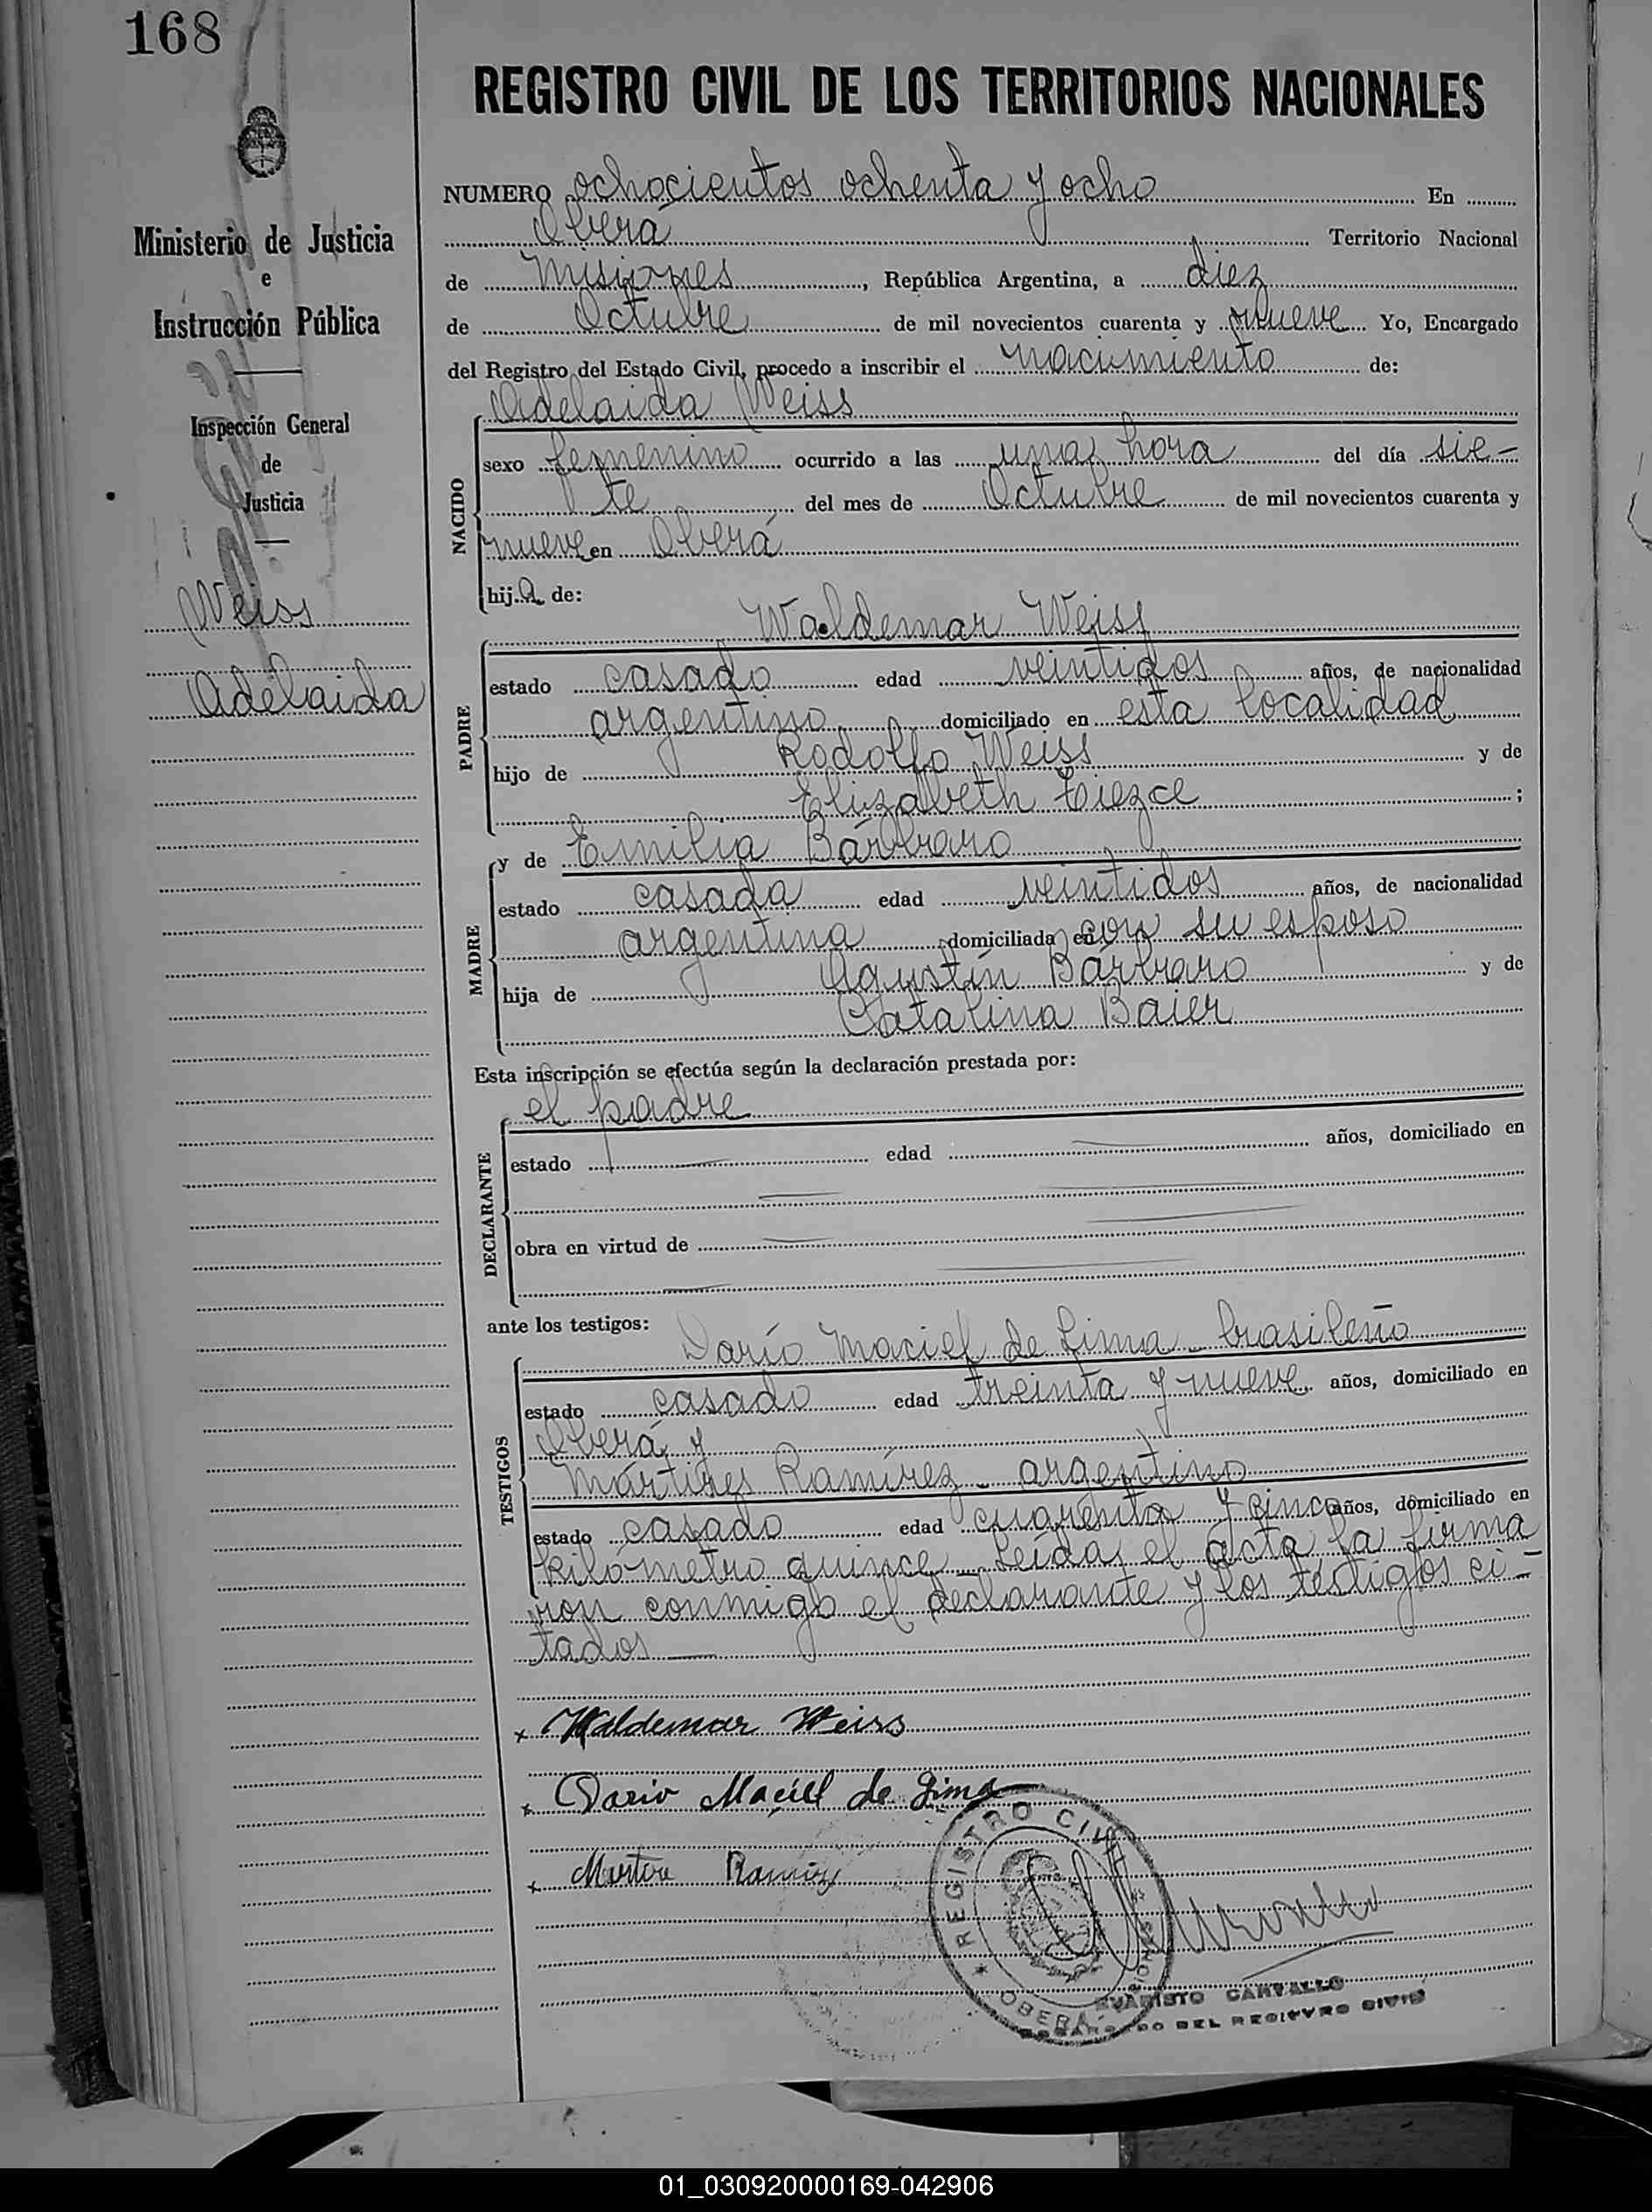 168
REGISTRO CIVIL DE LOS TERRITORIOS NACIONALES
Ministerio de Justicia
e
Instrucción Pública
Inspección General
de
Justicia
Weiss
Adelaida
NUMERO ochocientos ochenta y ocho En
Oberá Territorio Nacional
de Misiones, República Argentina, a diez
de Octubre de mil novecientos cuarenta y nueve Yo, Encargado
del Registro del Estado Civil, procedo a inscribir el nacimiento de:
Adelaida Weiss
NACIDO
sexo femenino ocurrido a las una hora del día sie-
te del mes de Octubre de mil novecientos cuarenta y
nueve en Oberá
hija de:
Waldemar Weiss
PADRE
estado casado edad veintidos años, de nacionalidad
argentino domiciliado en esta localidad
hijo de Rodolfo Weiss y de
Elizabeth ;
y de Emilia Bárbaro
MADRE
estado casada edad veintidos años, de nacionalidad
argentina domiciliada en con su esposo
hija de Agustín Bárbaro y de
Catalina Baier
Esta inscripción se efectúa según la declaración prestada por:
el padre
DECLARANTE
estado edad años, domiciliado en
obra en virtud de
ante los testigos:
Darío Maciel de Lima - brasileño
TESTIGOS
estado casado edad treinta y nueve años, domiciliado en
Oberá y
Mártires Ramírez - argentino
estado casado edad cuarenta y cinco años, domiciliado en
kilómetro quince - Leída el acta la firma
ron conmigo el declarante y los testigos ci-
tados
x Waldemar Weiss
x Dario Maciel de Lima
x Ramirez
REGISTRO CIVIL
OBERÁ - MISIONES
EVARISTO CARVALLO
ENCARGADO DEL REGISTRO CIVIL
01_030920000169-042906